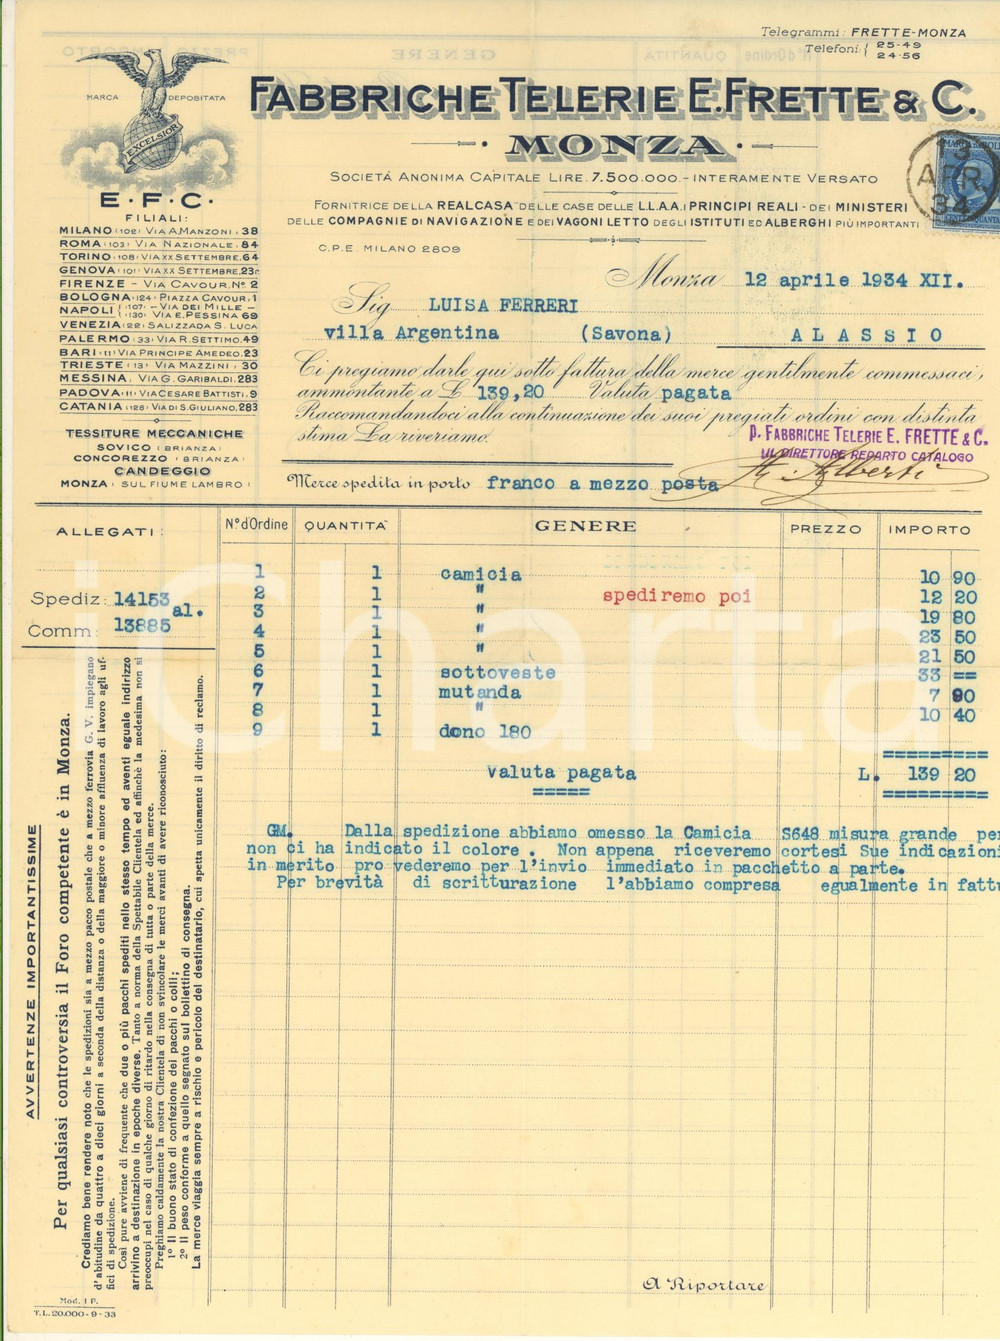 Telegrammi: FRETTE-MONZA
Telefoni: { 25-49
24-56
MARCA DEPOSITATA
EXCELSIOR
E·F·C·
FABBRICHE TELERIE E. FRETTE & C.
· MONZA ·
SOCIETÀ ANONIMA CAPITALE LIRE. 7.500.000.- INTERAMENTE VERSATO
FORNITRICE DELLA REALCASA DELLE CASE DELLE L.L.A.A. I PRINCIPI REALI - DEI MINISTERI
DELLE COMPAGNIE DI NAVIGAZIONE E DEI VAGONI LETTO DEGLI ISTITUTI ED ALBERGHI PIÙ IMPORTANTI
C.P.E. MILANO 2809
APR
34
FILIALI:
MILANO (102) VIA A. MANZONI, 38
ROMA (103) VIA NAZIONALE, 84
TORINO (108) VIA XX SETTEMBRE, 64
GENOVA (101) VIA XX SETTEMBRE, 23r
FIRENZE - VIA CAVOUR, N° 2
BOLOGNA (124) PIAZZA CAVOUR, 1
NAPOLI { (107) - VIA DEI MILLE -
(130) VIA E. PESSINA 69
VENEZIA (22) SALIZZADA S. LUCA
PALERMO (33) VIA R. SETTIMO, 49
BARI (11) VIA PRINCIPE AMEDEO, 23
TRIESTE (13) VIA MAZZINI, 30
MESSINA, VIA G. GARIBALDI, 283
PADOVA (11) VIA CESARE BATTISTI, 9
CATANIA (128) VIA DI S. GIULIANO, 283
TESSITURE MECCANICHE
SOVICO (BRIANZA)
CONCOREZZO (BRIANZA)
CANDEGGIO
MONZA (SUL FIUME LAMBRO)
Monza 12 aprile 1934 XII.
Sig LUISA FERRERI
villa Argentina (Savona) ALASSIO
Ci pregiamo darle qui sotto fattura della merce gentilmente commessaci,
ammontante a £ 139,20 Valuta pagata
Raccomandandoci alla continuazione dei suoi pregiati ordini con distinta
stima La riveriamo.
p. FABBRICHE TELERIE E. FRETTE & C.
IL DIRETTORE REPARTO CATALOGO
Alberti
Merce spedita in porto franco a mezzo posta
ALLEGATI:
Spediz: 14153 al.
Comm: 13885
N° d'Ordine QUANTITÀ GENERE PREZZO IMPORTO
1 1 camicia 10 90
2 1 " spediremo poi 12 20
3 1 " 19 80
4 1 " 23 50
5 1 " 21 50
6 1 sottoveste 33 ==
7 1 mutanda 7 90
8 1 " 10 40
9 1 dono 180
valuta pagata L. 139 20
GM. Dalla spedizione abbiamo omesso la Camicia S648 misura grande per
non ci ha indicato il colore . Non appena riceveremo cortesi Sue indicazioni
in merito pro vederemo per l'invio immediato in pacchetto a parte.
Per brevità di scritturazione l'abbiamo compresa egualmente in fattu
AVVERTENZE IMPORTANTISSIME
Per qualsiasi controversia il Foro competente è in Monza.
Crediamo bene rendere noto che le spedizioni sia a mezzo pacco postale che a mezzo ferrovia G. V. impiegano
d'abitudine da quattro a dieci giorni a seconda della distanza o della maggiore o minore affluenza di lavoro agli uf-
fici di spedizione.
Così pure avviene di frequente che due o più pacchi spediti nello stesso tempo ed aventi eguale indirizzo
arrivino a destinazione in epoche diverse. Tanto a norma della Spettabile Clientela ed affinchè la medesima non si
preoccupi nel caso di qualche giorno di ritardo nella consegna di tutta o parte della merce.
Preghiamo caldamente la nostra Clientela di non svincolare le merci avanti di avere riconosciuto:
1° Il buono stato di confezione dei pacchi o colli;
2° Il peso conforme a quello segnato sul bollettino di consegna.
La merce viaggia sempre a rischio e pericolo del destinatario, cui spetta unicamente il diritto di reclamo.
A Riportare
Mod. 1 F.
T.L. 20.000 - 9 - 33
iCharta